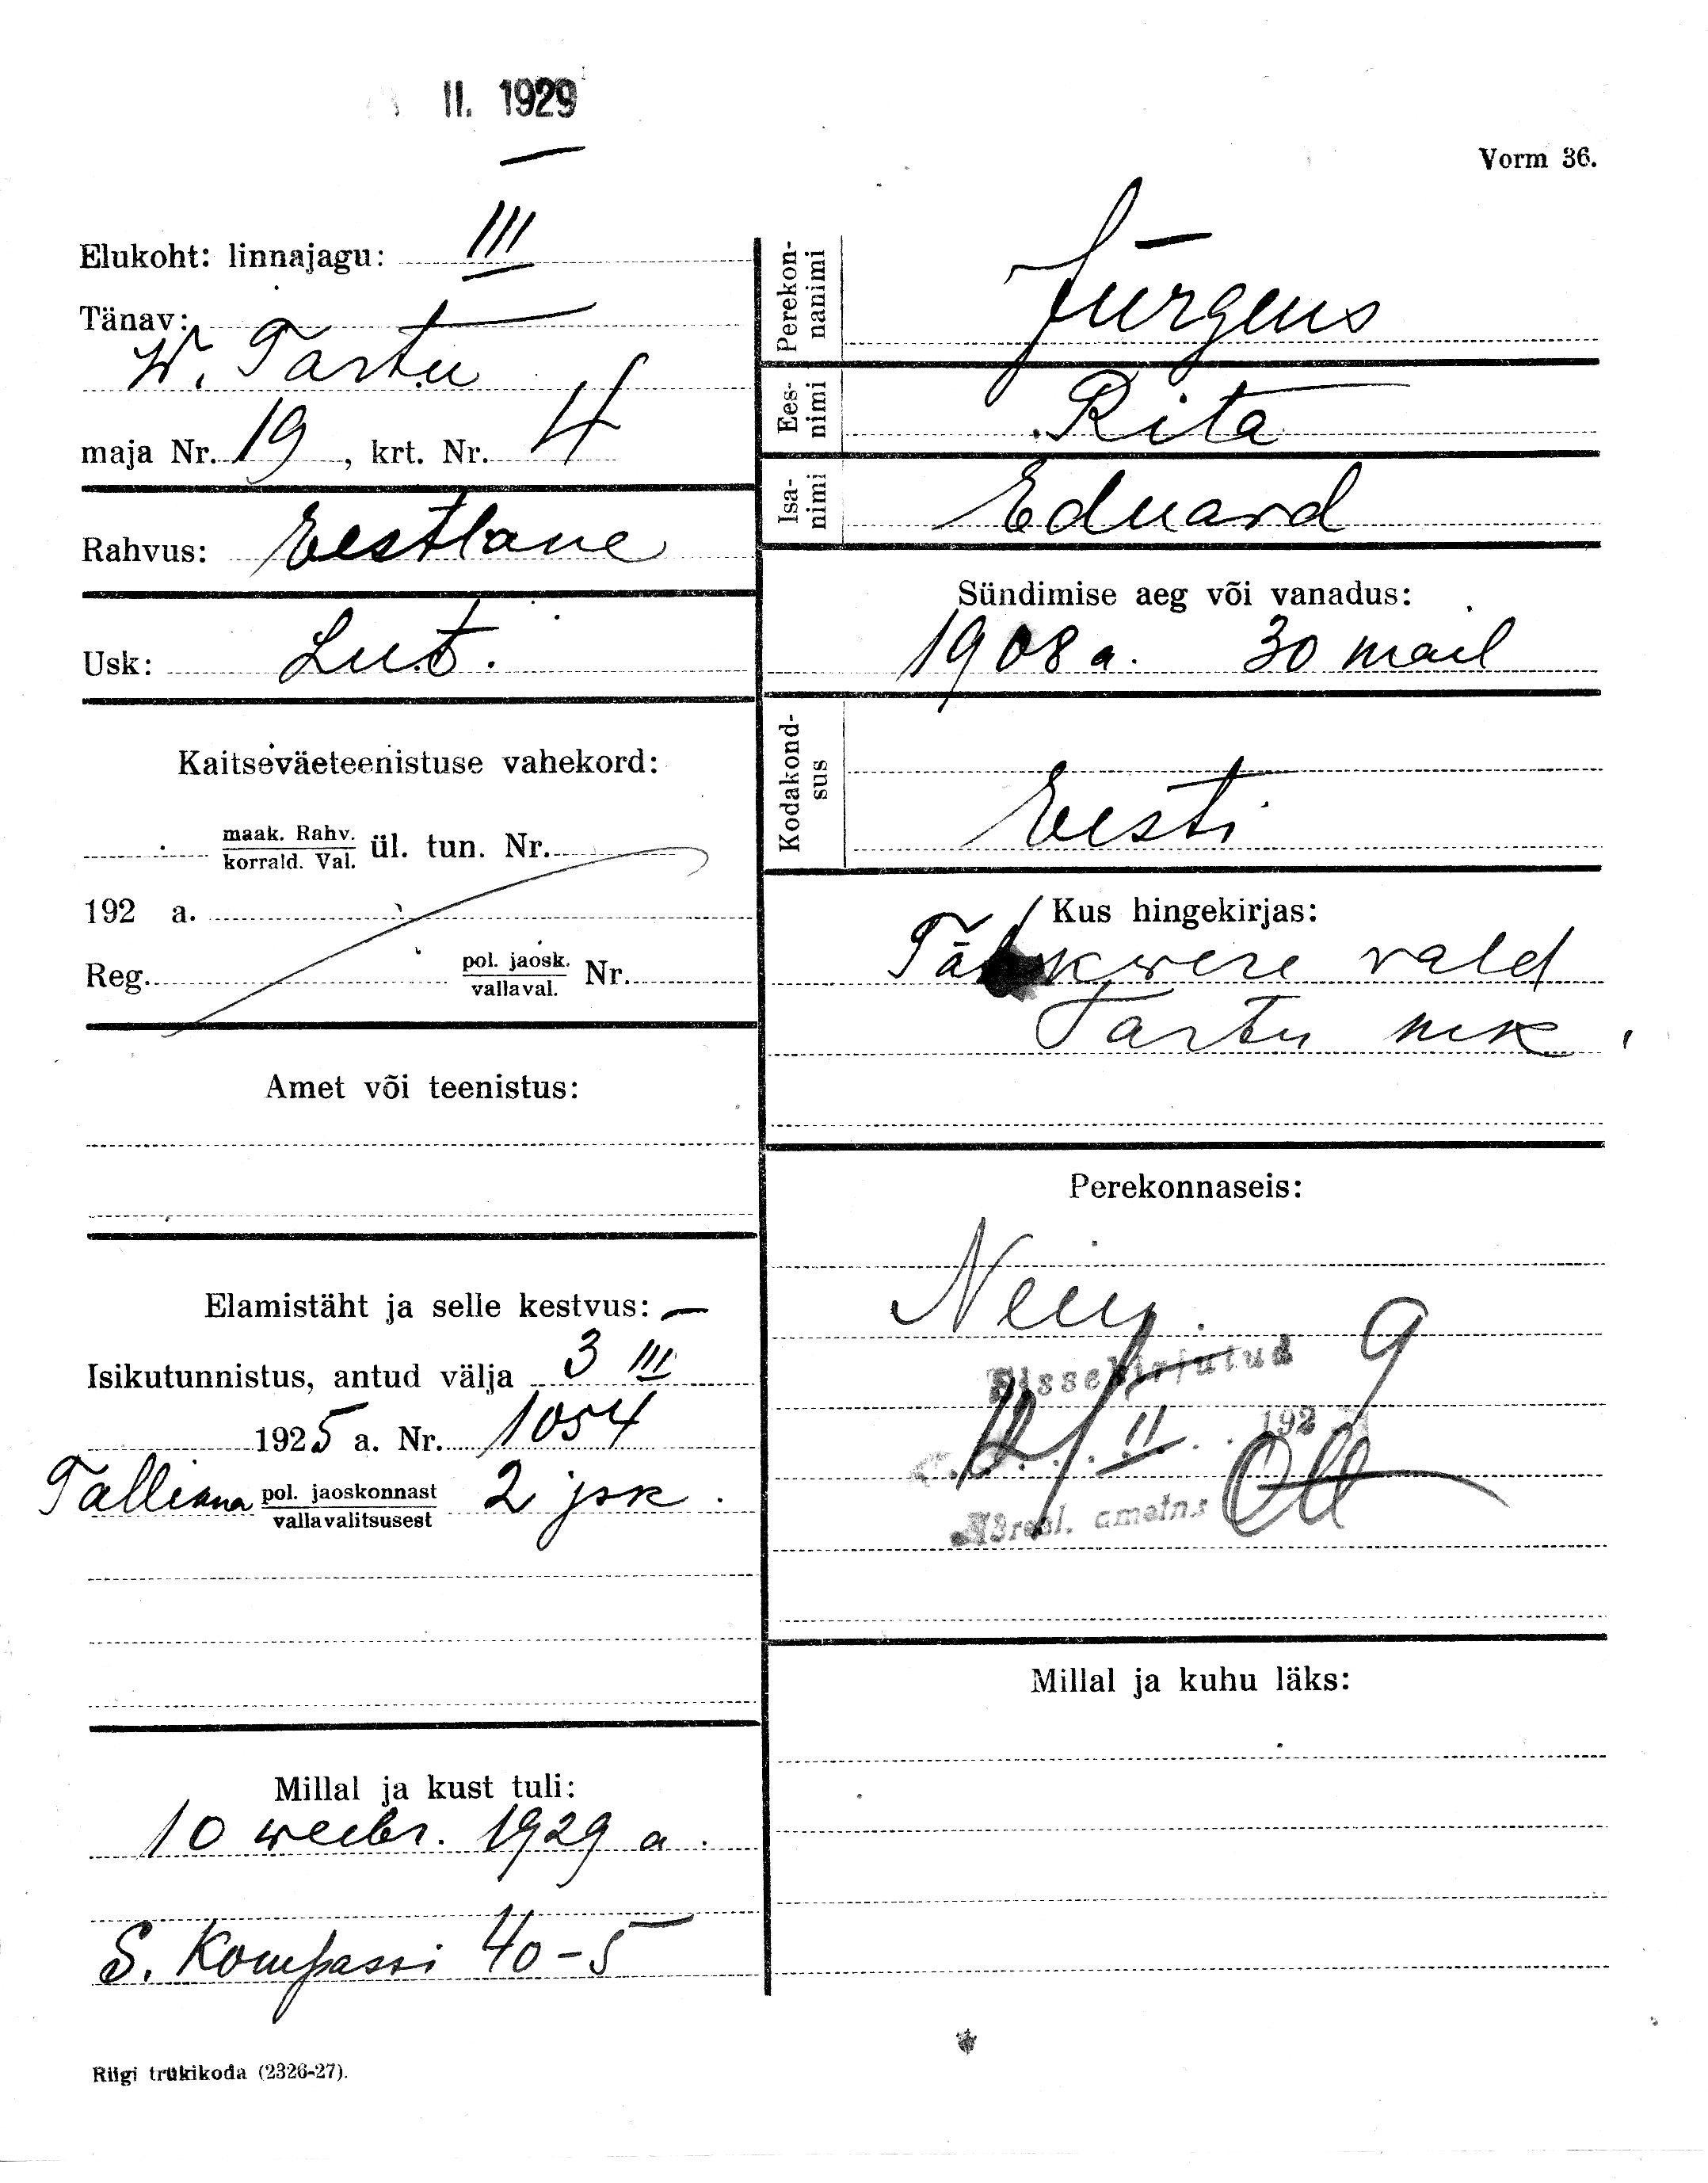 II. 1929
Vorm 36.
Elukoht: linnajagu: III
Tänav:
W. Tartu
maja Nr. 19, krt. Nr. 4
Rahvus: Eestlane
Usk: Lut.
Kaitseväeteenistuse vahekord:
maak. Rahv.
korrald. Val. ül. tun. Nr.
192 a.
Reg. pol. jaosk. Nr.
vallaval.
Amet või teenistus:
Elamistäht ja selle kestvus: —
Isikutunnistus, antud välja 3 III
1925 a. Nr. 1054
Tallinna pol. jaoskonnast 2 jsk.
vallavalitsusest
Millal ja kust tuli:
10 weebr. 1929 a.
S. Kompassi 40-5
Perekon-
nanimi
Jürgens
Ees-
nimi
Rita
Isa-
nimi
Eduard
Sündimise aeg või vanadus:
1908 a. 30 mail
Kodakond-
sus
Eesti
Kus hingekirjas:
Tähkwere vald
Tartu mk.
Perekonnaseis:
Neiu.
Sissekirjutud
12 II 1929
Millal ja kuhu läks:
Riigi trükikoda (2326-27).